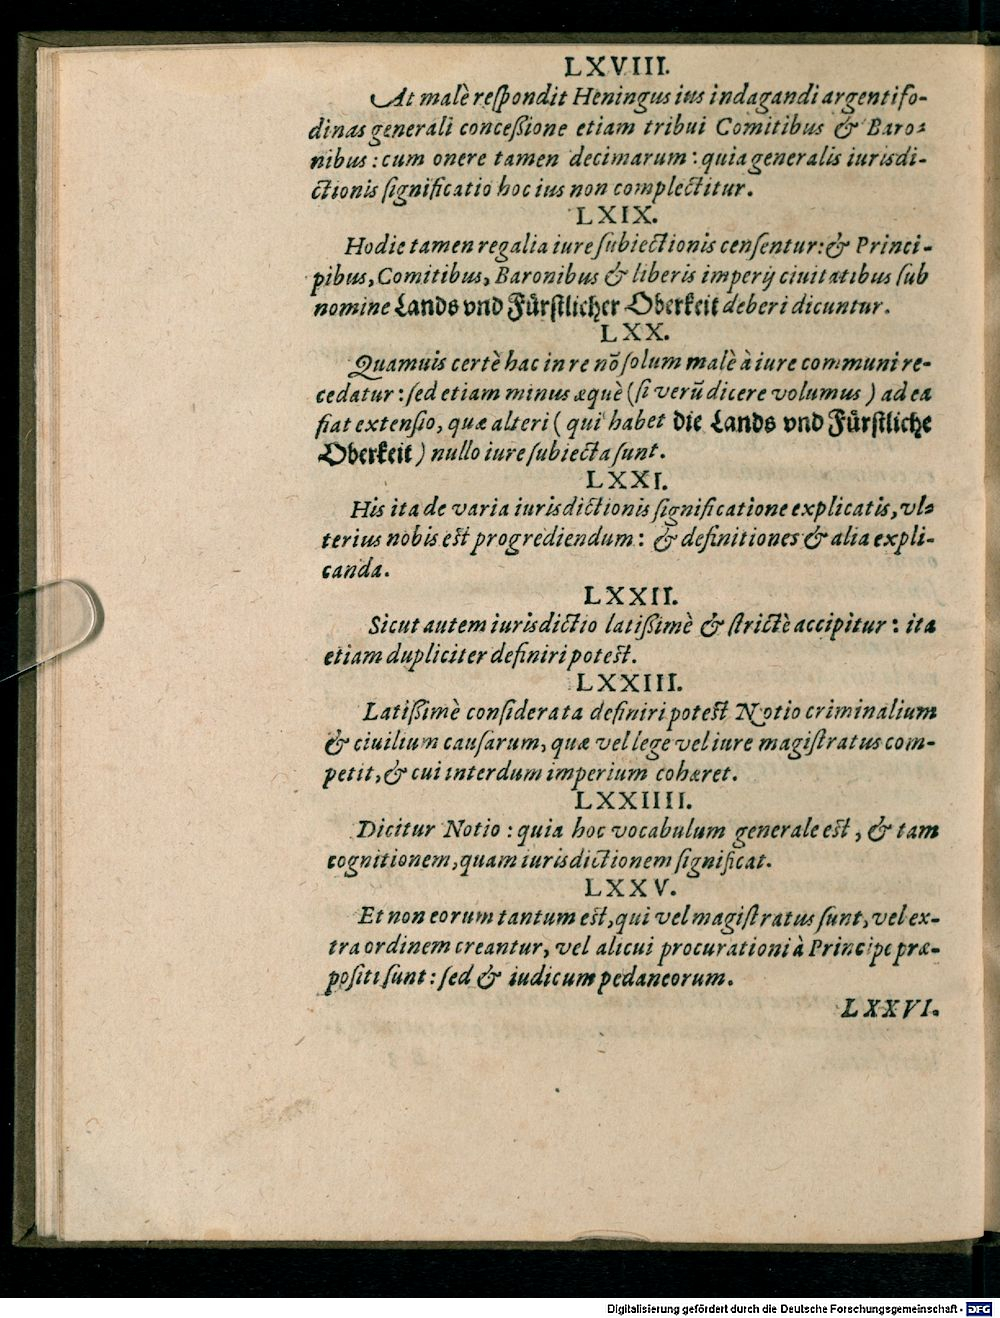 LXVIII.
At malè respondit Heningus ius indagandi argentifo-
dinas generali conceßione etiam tribui Comitibus & Baro-
nibus: cum onere tamen decimarum: quia generalis iurisdi-
ctionis significatio hoc ius non complectitur.
LXIX.
Hodie tamen regalia iure subiectionis censentur: & Princi-
pibus, Comitibus, Baronibus & liberis imperij ciuitatibus sub
nomine Lands vnd Fürstlicher Oberkeit deberi dicuntur.
LXX.
Quamuis certè hac in re nō solum malè à iure communi re-
cedatur: sed etiam minus æquè (si verū dicere volumus) ad ea
fiat extensio, quæ alteri (qui habet die Lands vnd Fürstliche
Oberkeit) nullo iure subiecta sunt.
LXXI.
His ita de varia iurisdictionis significatione explicatis, vl-
terius nobis est progrediendum: & definitiones & alia expli-
canda.
LXXII.
Sicut autem iurisdictio latißimè & strictè accipitur: ita
etiam dupliciter definiri potest.
LXXIII.
Latißimè considerata definiri potest Notio criminalium
& ciuilium causarum, quæ vel lege vel iure magistratus com-
petit, & cui interdum imperium cohæret.
LXXIIII.
Dicitur Notio: quia hoc vocabulum generale est, & tam
cognitionem, quam iurisdictionem significat.
LXXV.
Et non eorum tantum est, qui vel magistratus sunt, vel ex-
tra ordinem creantur, vel alicui procurationi à Principe præ-
positi sunt: sed & iudicum pedaneorum.
LXXVI.
Digitalisierung gefördert durch die Deutsche Forschungsgemeinschaft - DFG